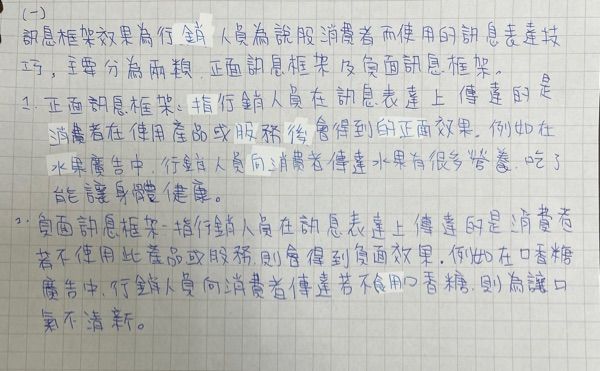 (一)
訊息框架效果為行銷人員為說服消費者而使用的訊息表達技
巧，主要分為兩類，正面訊息框架及負面訊息框架。
1. 正面訊息框架：指行銷人員在訊息表達上傳達的是
消費者在使用產品或服務後會得到的正面效果。例如在
水果廣告中，行銷人員向消費者傳達水果有很多營養，吃了
能讓身體健康。
2. 負面訊息框架：指行銷人員在訊息表達上傳達的是消費者
若不使用此產品或服務，則會得到負面效果。例如在口香糖
廣告中，行銷人員向消費者傳達若不食用口香糖，則為讓口
氣不清新。